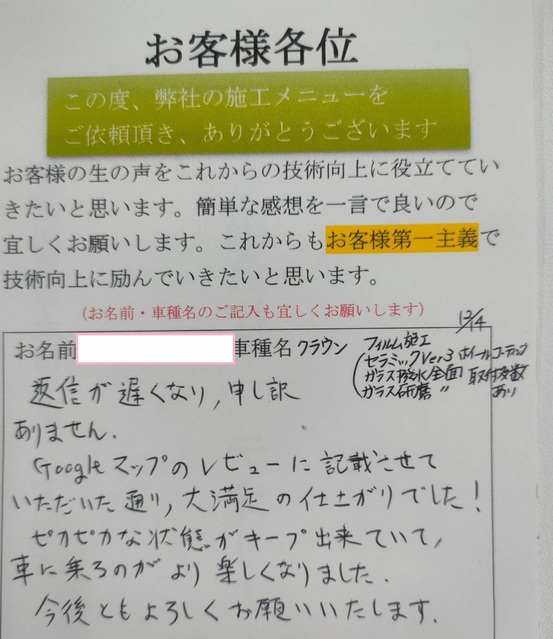 お客様各位
この度、弊社の施工メニューを
ご依頼頂き、ありがとうございます
お客様の生の声をこれからの技術向上に役立ててい
きたいと思います。簡単な感想を一言で良いので
宜しくお願いします。これからもお客様第一主義で
技術向上に励んでいきたいと思います。
(お名前・車種名のご記入も宜しくお願いします)
12/14
お名前
車種名 クラウン
フィルム施工
セラミックVer3 ホイールコーティング
ガラス撥水全面 取付多数
ガラス研磨 〃 あり
返信が遅くなり,申し訳
ありません.
Googleマップのレビューに記載させて
いただいた通り,大満足の仕上がりでした!
ピカピカな状態がキープ出来ていて,
車に乗るのがより楽しくなりました.
今後ともよろしくお願いいたします.